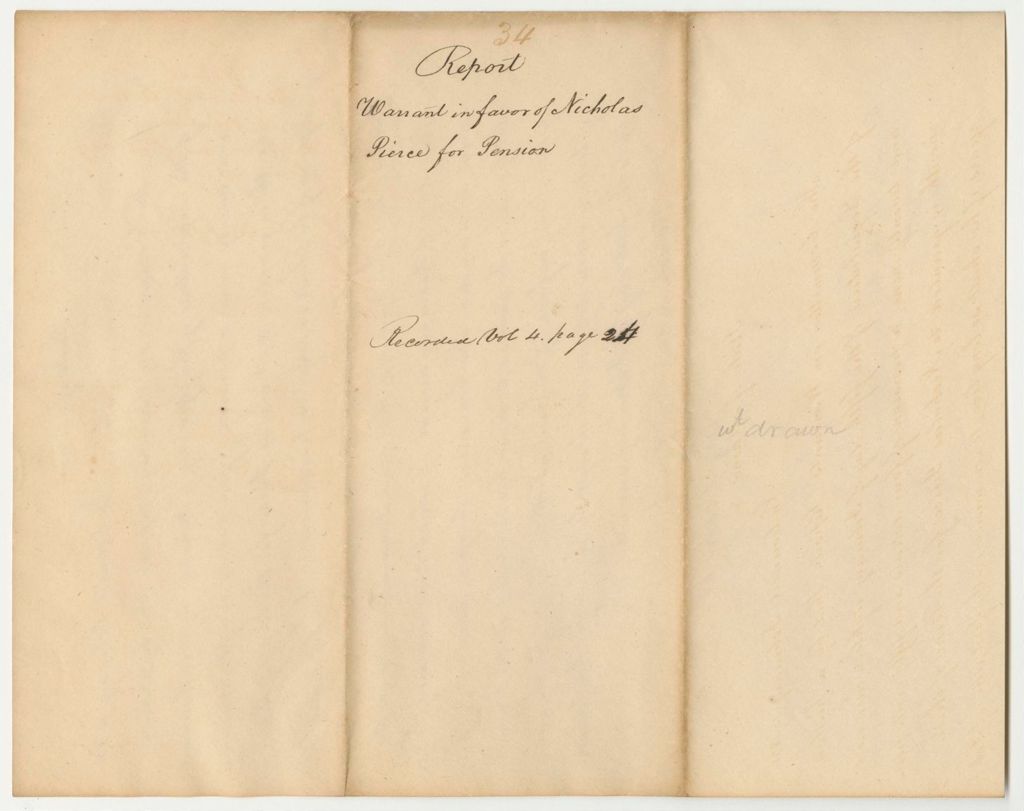 34
Report
Warrant in favor of Nicholas
Pierce for Pension
Recorded Vol 4. page 24
wt drawn